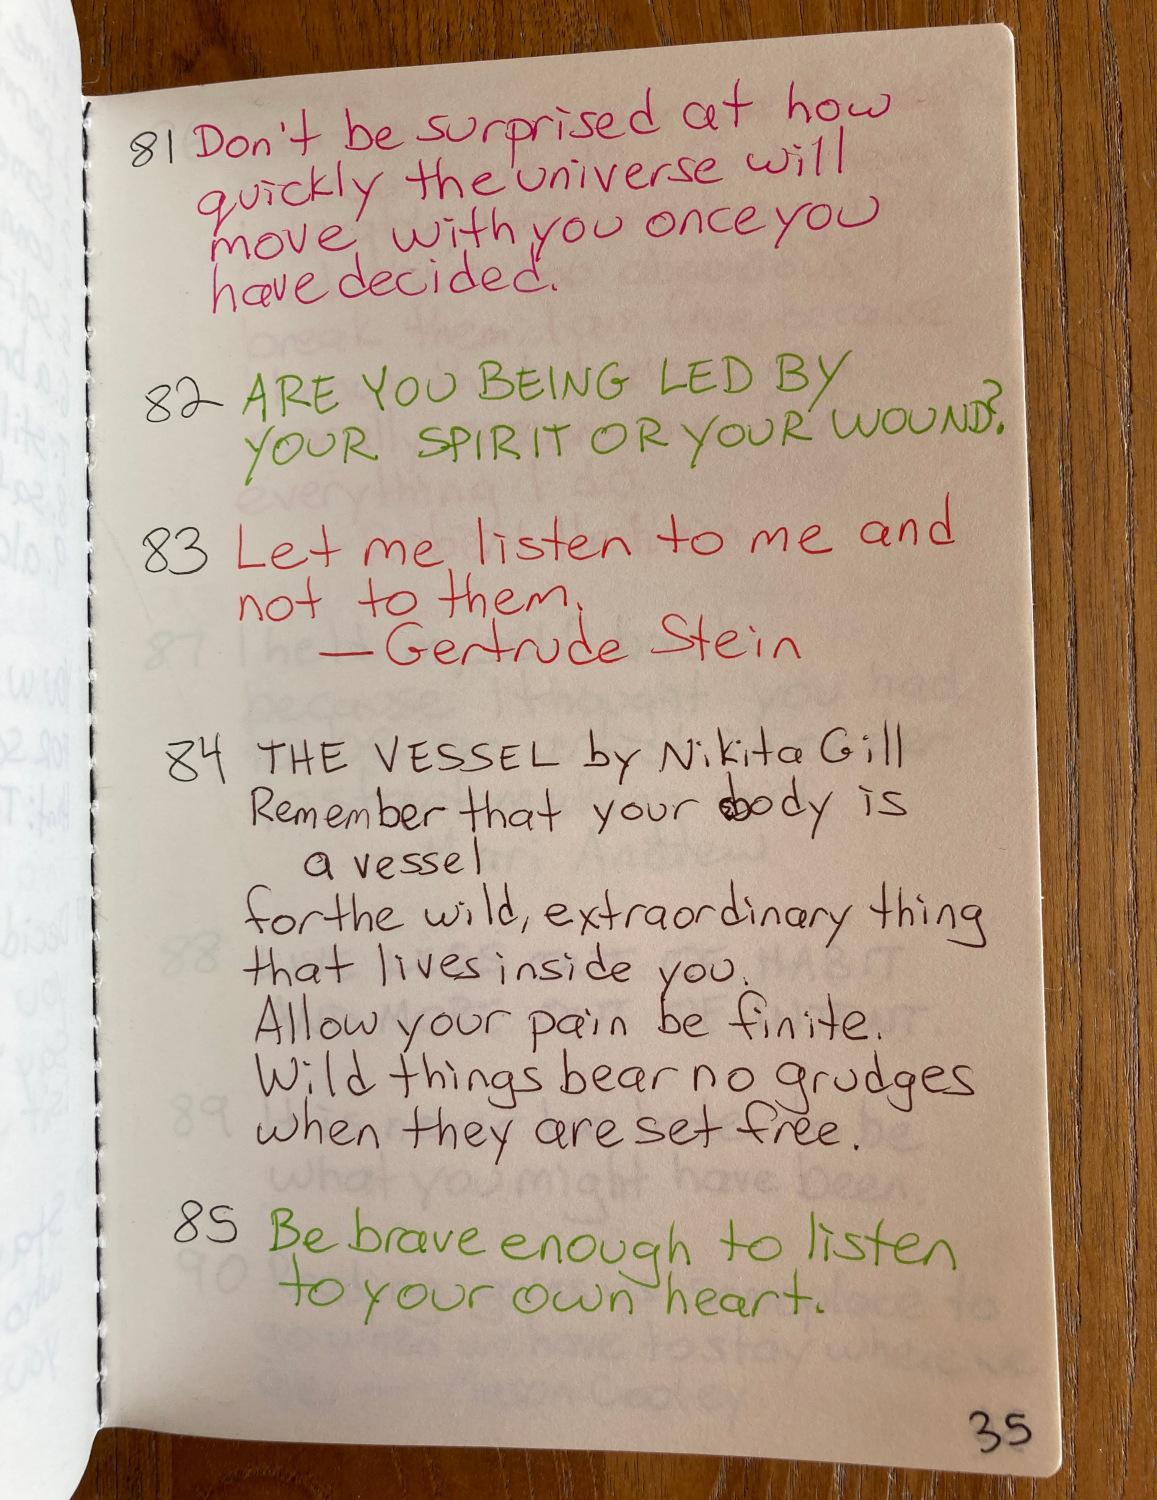 81 Don't be surprised at how
quickly the universe will
move with you once you
have decided.
82 ARE YOU BEING LED BY
YOUR SPIRIT OR YOUR WOUND?
83 Let me listen to me and
not to them.
— Gertrude Stein
84 THE VESSEL by Nikita Gill
Remember that your body is
a vessel
for the wild, extraordinary thing
that lives inside you.
Allow your pain be finite.
Wild things bear no grudges
when they are set free.
85 Be brave enough to listen
to your own heart.
35